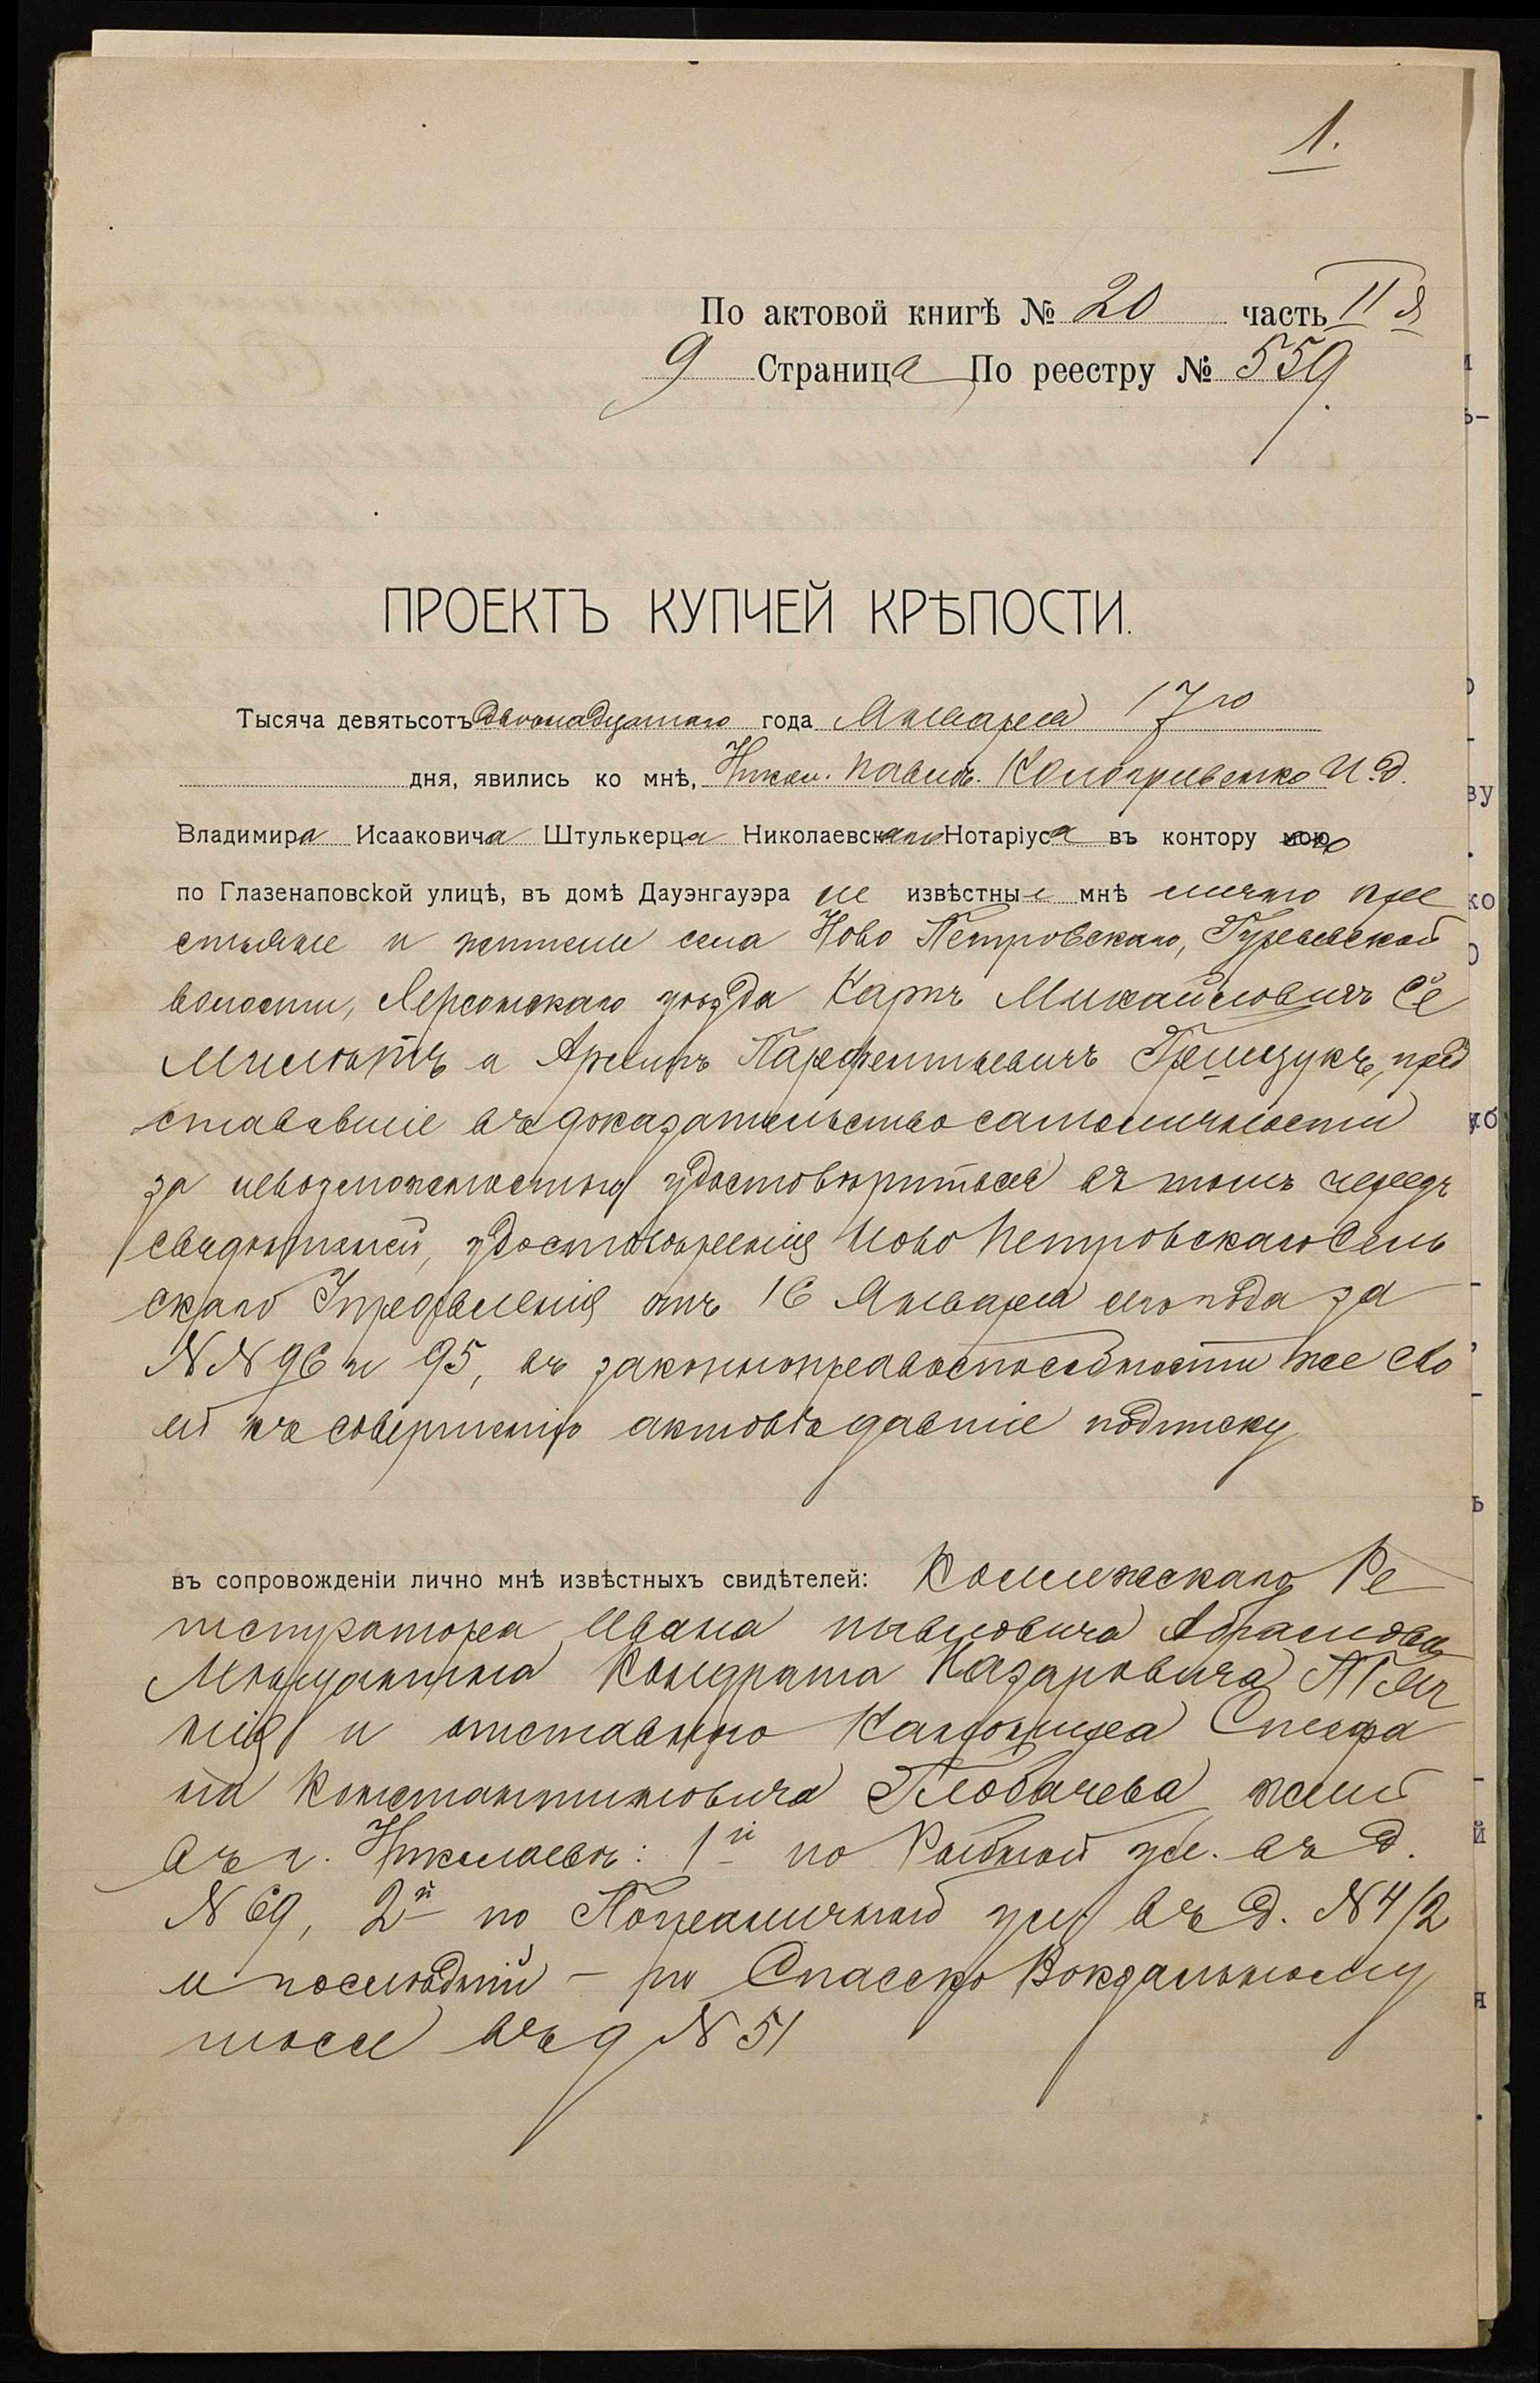 1.
По актовой книгѣ № 20 часть II я
9 Страница По реестру № 559.
ПРОЕКТЪ КУПЧЕЙ КРѢПОСТИ.
Тысяча девятьсотъ двѣнадцатаго года Января 17го
дня, явились ко мнѣ, Никол. Павлов. Кологривенко И. д.
Владимира Исааковича Штулькерца Николаевскаго Нотаріуса въ контору его
по Глазенаповской улицѣ, въ домѣ Дауэнгауэра не извѣстные мнѣ лично кре
стьяне и жители села Ново Петровскаго, Гурьевской
волости, Херсонскаго уѣзда Карпъ Михайловичъ Се
и Парфентьевичъ Грищукъ, пред
ставившіе въ доказательство самоличности
за невозможностью удостовѣриться въ томъ черезъ
свидѣтелей, удостовѣренія Ново Петровскаго Сель
скаго Управленія отъ 16 Января сего года за
N N 96 и 95, въ законноправоспособности же сво
ей къ совершенію актовъ давшіе подписку
въ сопровожденіи лично мнѣ извѣстныхъ свидѣтелей: Коллежскаго Ре
гистратора Ивана Павловича Абрамова
Мѣщанина Кондрата Назаровича
и отставного Канонира Стефа
на Константиновича Глобачева жив
въ г. Николаевѣ: 1й по Рыбной ул. въ д.
N 69, 2й по Пограничной ул въ д. N 4/2
и послѣдній - по Спасско Вокзальному
шоссе въ д N 51